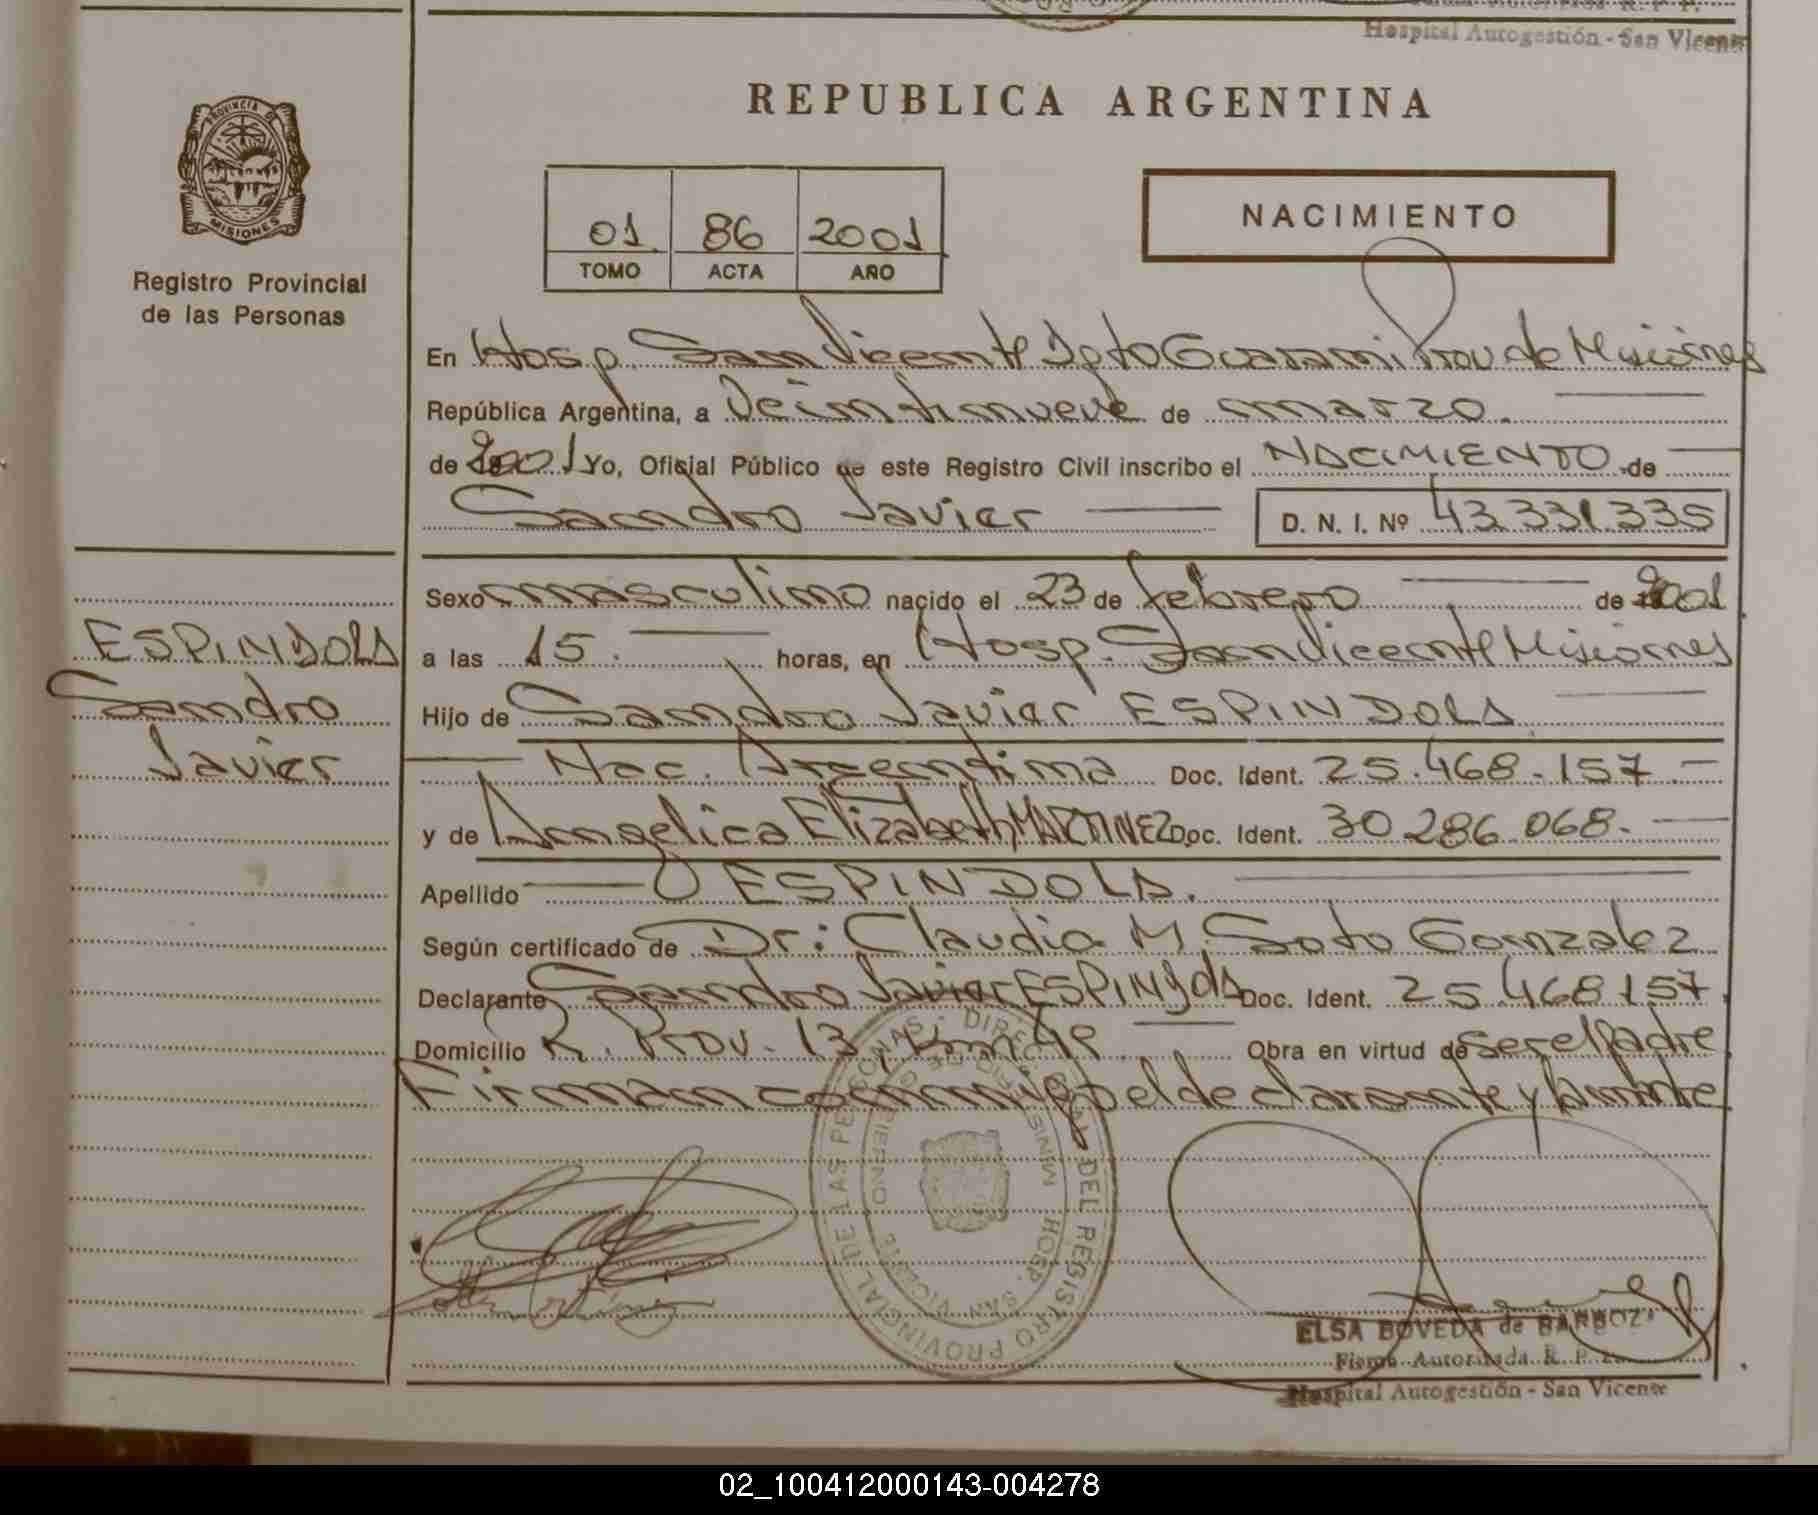 Hospital Autogestión - San Vicente
REPUBLICA ARGENTINA
PROVINCIA DE
MISIONES
Registro Provincial
de las Personas
01 86 2001
TOMO ACTA AÑO
NACIMIENTO
En Hosp. San Vicente Dpto Guarani Prov de Misiones
República Argentina, a Veintinueve de marzo.
de 2001 Yo, Oficial Público de este Registro Civil inscribo el NACIMIENTO de
Sandro Javier D. N. I. Nº 43.331.335
Sexo masculino nacido el 23 de febrero de 2001
a las 15. horas, en Hosp. San Vicente Misiones
Hijo de Sandro Javier ESPINDOLA
Nac. Argentina Doc. Ident. 25.468.157
y de Angelica Elizabeth MARTINEZ Doc. Ident. 30.286.068.
Apellido ESPINDOLA.
Según certificado de Dr: Claudia M. Soto Gonzalez
Declarante Sandro Javier ESPINDOLA Doc. Ident. 25.468.157
Domicilio R. Prov. 13, Km 49 Obra en virtud de ser el padre
Firman conmigo el declarante y
ESPINDOLA
Sandro
Javier
DEL REGISTRO PROVINCIAL DE LAS PERSONAS
HOSP. SAN VICENTE
ELSA BOVEDA de BARBOZA
Firma Autorizada R. P. P.
Hospital Autogestión - San Vicente
02_100412000143-004278